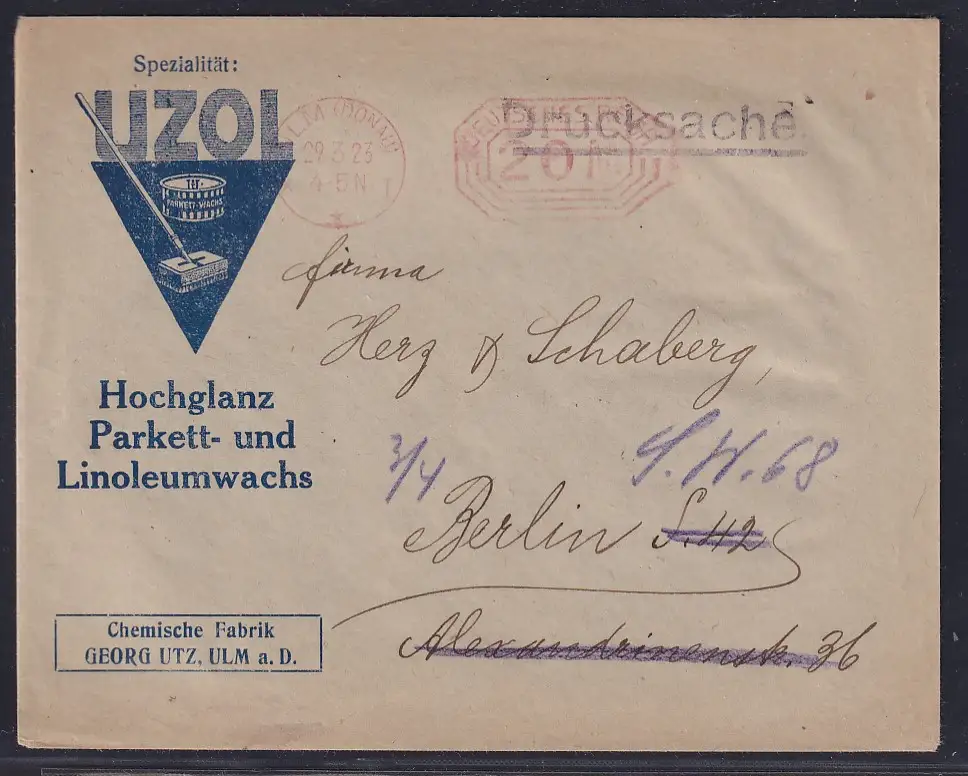 Spezialität:
UZOL
PARKETT-WACHS
(DONAU)
29.3.23
4-5 N
20
Drucksache.
Firma
Herz & Schaberg,
Hochglanz
Parkett- und
Linoleumwachs
3/4
S.W. 68
Berlin S. 42
Alexandrinenstr. 36
Chemische Fabrik
GEORG UTZ, ULM a. D.